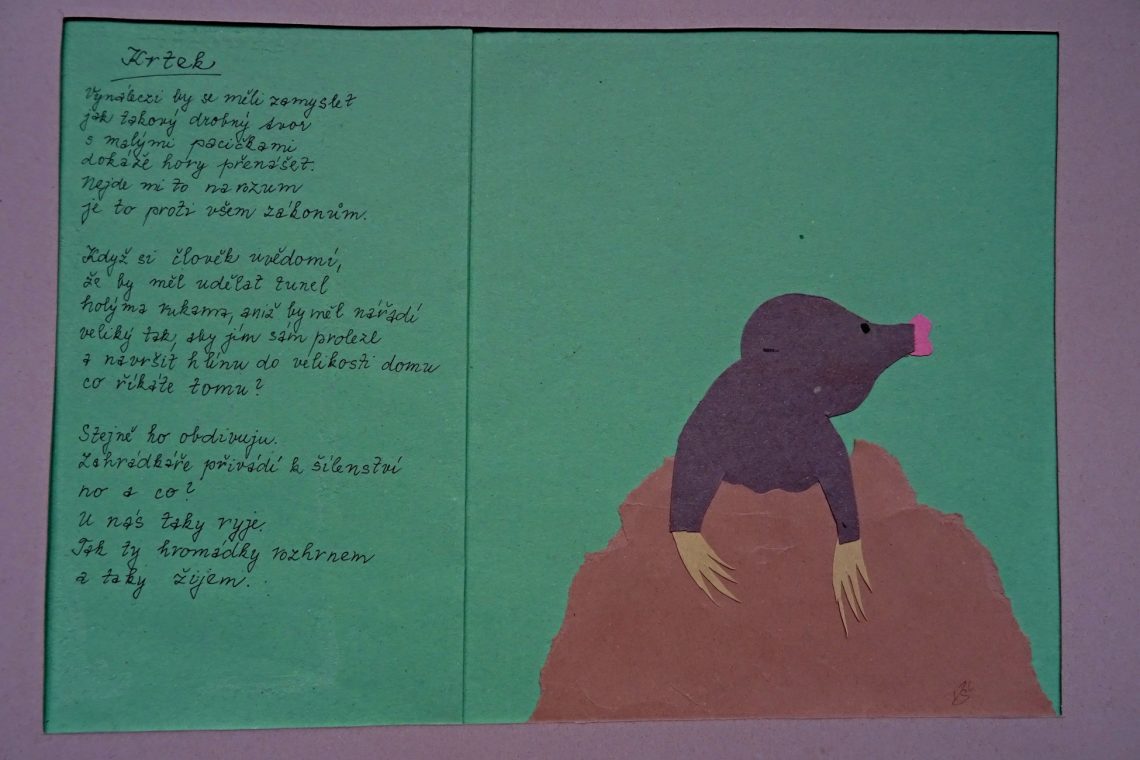 Krtek
Vynálezci by se měli zamyslet
jak takový drobný tvor
s malými pacičkami
dokáže hory přenášet.
Nejde mi to na rozum
je to proti všem zákonům.
Když si člověk uvědomí,
že by měl udělat tunel
holýma rukama, aniž by měl nářadí
veliký tak, aby jím sám prolezl
a navršit hlínu do velikosti domu
co říkáte tomu?
Stejně ho obdivuju.
Zahrádkáře přivádí k šílenství
no a co?
U nás taky ryje.
Tak ty hromádky rozhrnem
a taky žijem.